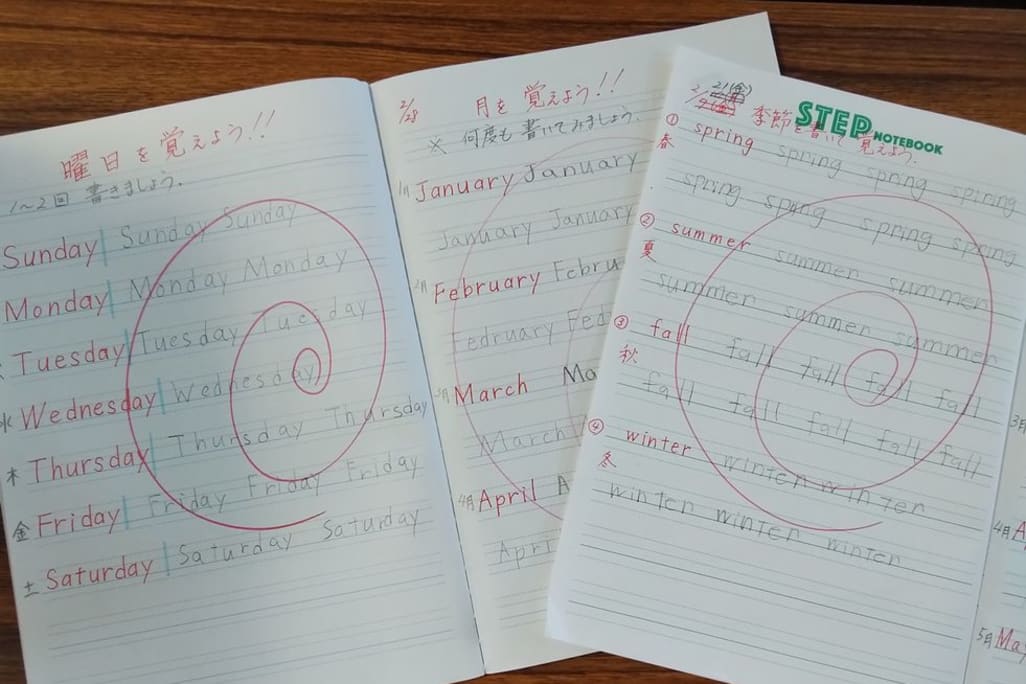 曜日を覚えよう!!
1〜2回 書きましょう.
Sunday Sunday Sunday
Monday Monday Monday
Tuesday Tuesday Tuesday
水 Wednesday Wednesday
木 Thursday Thursday Thursday
金 Friday Friday Friday Friday
土 Saturday Saturday Saturday
2/28 月を覚えよう!!
※ 何度も書いてみましょう.
1月 January January
January January
2月 February Febru
Fedruary Fed
3月 March Ma
March
4月 April A
Apri
STEP NOTEBOOK
2/21(金) 季節を書いて覚えよう.
① spring spring spring spiring
春
spring spring spring spring
② summer summer summer
夏
summer summer summer
③ fall fall fall fall fall
秋
fall fall fall fall fall
④ winter winter winter
冬
winter winter winter
3月
4月 A
5月 Ma